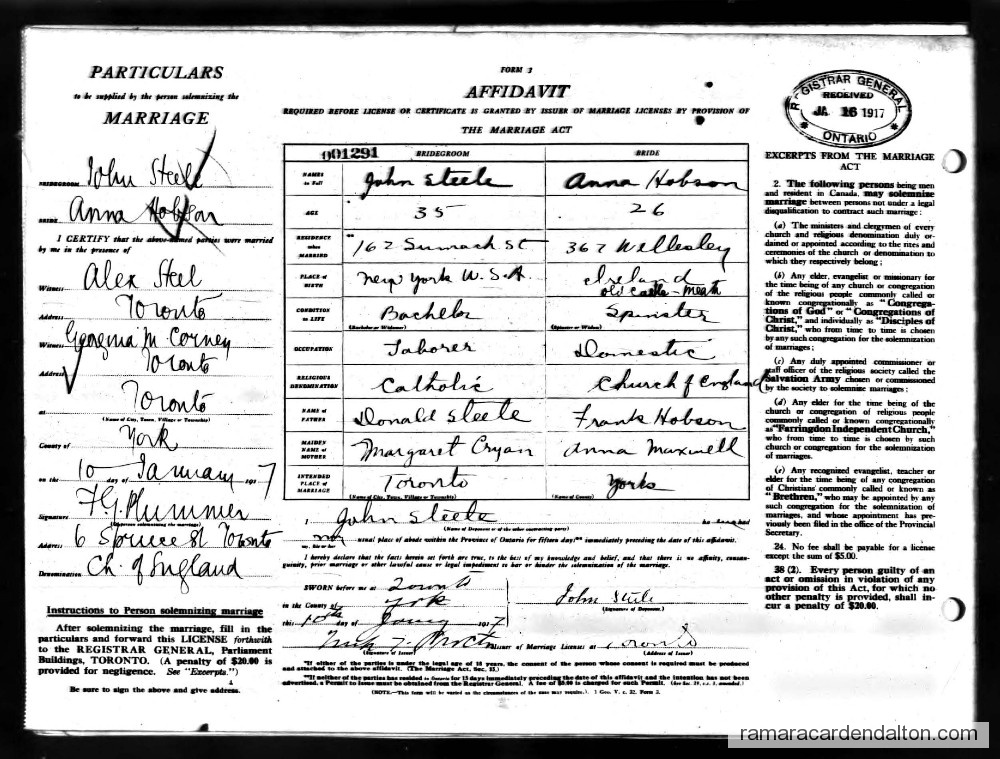 PARTICULARS
to be supplied by the person solemnizing the
MARRIAGE
BRIDEGROOM John Steele
BRIDE Anna Hobson
I CERTIFY that the above-named parties were married
by me in the presence of
Witness Alex Steel
Address Toronto
Witness Georgina M Corney
Address Toronto
at Toronto
(Name of City, Town, Village or Township)
County of York
on the 10 day of January 1917
Signature F.G. Plummer
(Of person solemnizing the marriage)
Address 6 Spruce St Toronto
Denomination Ch. of England
Instructions to Person solemnizing marriage
After solemnizing the marriage, fill in the
particulars and forward this LICENSE forthwith
to the REGISTRAR GENERAL, Parliament
Buildings, TORONTO. (A penalty of $20.00 is
provided for negligence. See "Excerpts.")
Be sure to sign the above and give address.
FORM 3
AFFIDAVIT
REQUIRED BEFORE LICENSE OR CERTIFICATE IS GRANTED BY ISSUER OF MARRIAGE LICENSES BY PROVISION OF
THE MARRIAGE ACT
001291 BRIDEGROOM BRIDE
NAMES in Full John Steele Anna Hobson
AGE 35 26
RESIDENCE when MARRIED 162 Sumach St 362 Wellesley
PLACE of BIRTH New York U.S.A. Ireland
Old Castle - Meath
CONDITION in LIFE Bachelor Spinster
(Bachelor or Widower) (Spinster or Widow)
OCCUPATION Laborer Domestic
RELIGIOUS DENOMINATION Catholic Church of England
NAME of FATHER Donald Steele Frank Hobson
MAIDEN NAME of MOTHER Margaret Cryan Anna Maxwell
INTENDED PLACE of MARRIAGE Toronto York
(Name of City, Town, Village or Township) (Name of County)
I John Steele
(Name of Deponent or of the other contracting party)
my, his or her usual place of abode within the Province of Ontario for fifteen days** immediately preceding the date of this affidavit.
I hereby declare that the facts herein set forth are true, to the best of my knowledge and belief, and that there is no affinity, consan-
guinity, prior marriage or other lawful cause or legal impediment to bar or hinder the solemnization of the marriage.
SWORN before me at Toronto
in the County of York
this 10th day of January 1917
John Steele
(Signature of Deponent.)
(Signature of Issuer) Issuer of Marriage Licenses at Toronto
(Address of Issuer)
*If either of the parties is under the legal age of 18 years, the consent of the person whose consent is required must be produced
and attached to the above affidavit. (The Marriage Act, Sec. 15.)
**If neither of the parties has resided in Ontario for 15 days immediately preceding the date of this affidavit and the intention has not been
advertised, a Permit to Issue must be obtained from the Registrar General.
REGISTRAR GENERAL
RECEIVED
JA 16 1917
ONTARIO
EXCERPTS FROM THE MARRIAGE
ACT
2. The following persons being men
and resident in Canada, may solemnize
marriage between persons not under a legal
disqualification to contract such marriage:
(a) The ministers and clergymen of every
church and religious denomination duly or-
dained or appointed according to the rites and
ceremonies of the church or denomination to
which they respectively belong;
(b) Any elder, evangelist or missionary for
the time being of any church or congregation
of the religious people commonly called or
known congregationally as "Congrega-
tions of God" or "Congregations of
Christ," and individually as "Disciples of
Christ," who from time to time is chosen
by any such congregation for the solemnization
of marriages;
(c) Any duly appointed commissioner or
staff officer of the religious society called the
Salvation Army chosen or commissioned
by the society to solemnize marriages;
(d) Any elder for the time being of the
church or congregation of religious people
commonly called or known congregationally
as "Farringdon Independent Church,"
who from time to time is chosen by such
church or congregation for the solemnization
of marriages.
(e) Any recognized evangelist, teacher or
elder for the time being of any congregation
of Christians commonly called or known as
"Brethren," who may be appointed by any
such congregation for the solemnization of
marriages, and whose appointment has pre-
viously been filed in the office of the Provincial
Secretary.
24. No fee shall be payable for a license
except the sum of $5.00.
38 (2). Every person guilty of an
act or omission in violation of any
provision of this Act, for which no
other penalty is provided, shall in-
cur a penalty of $20.00.
ramaracardendalton.com